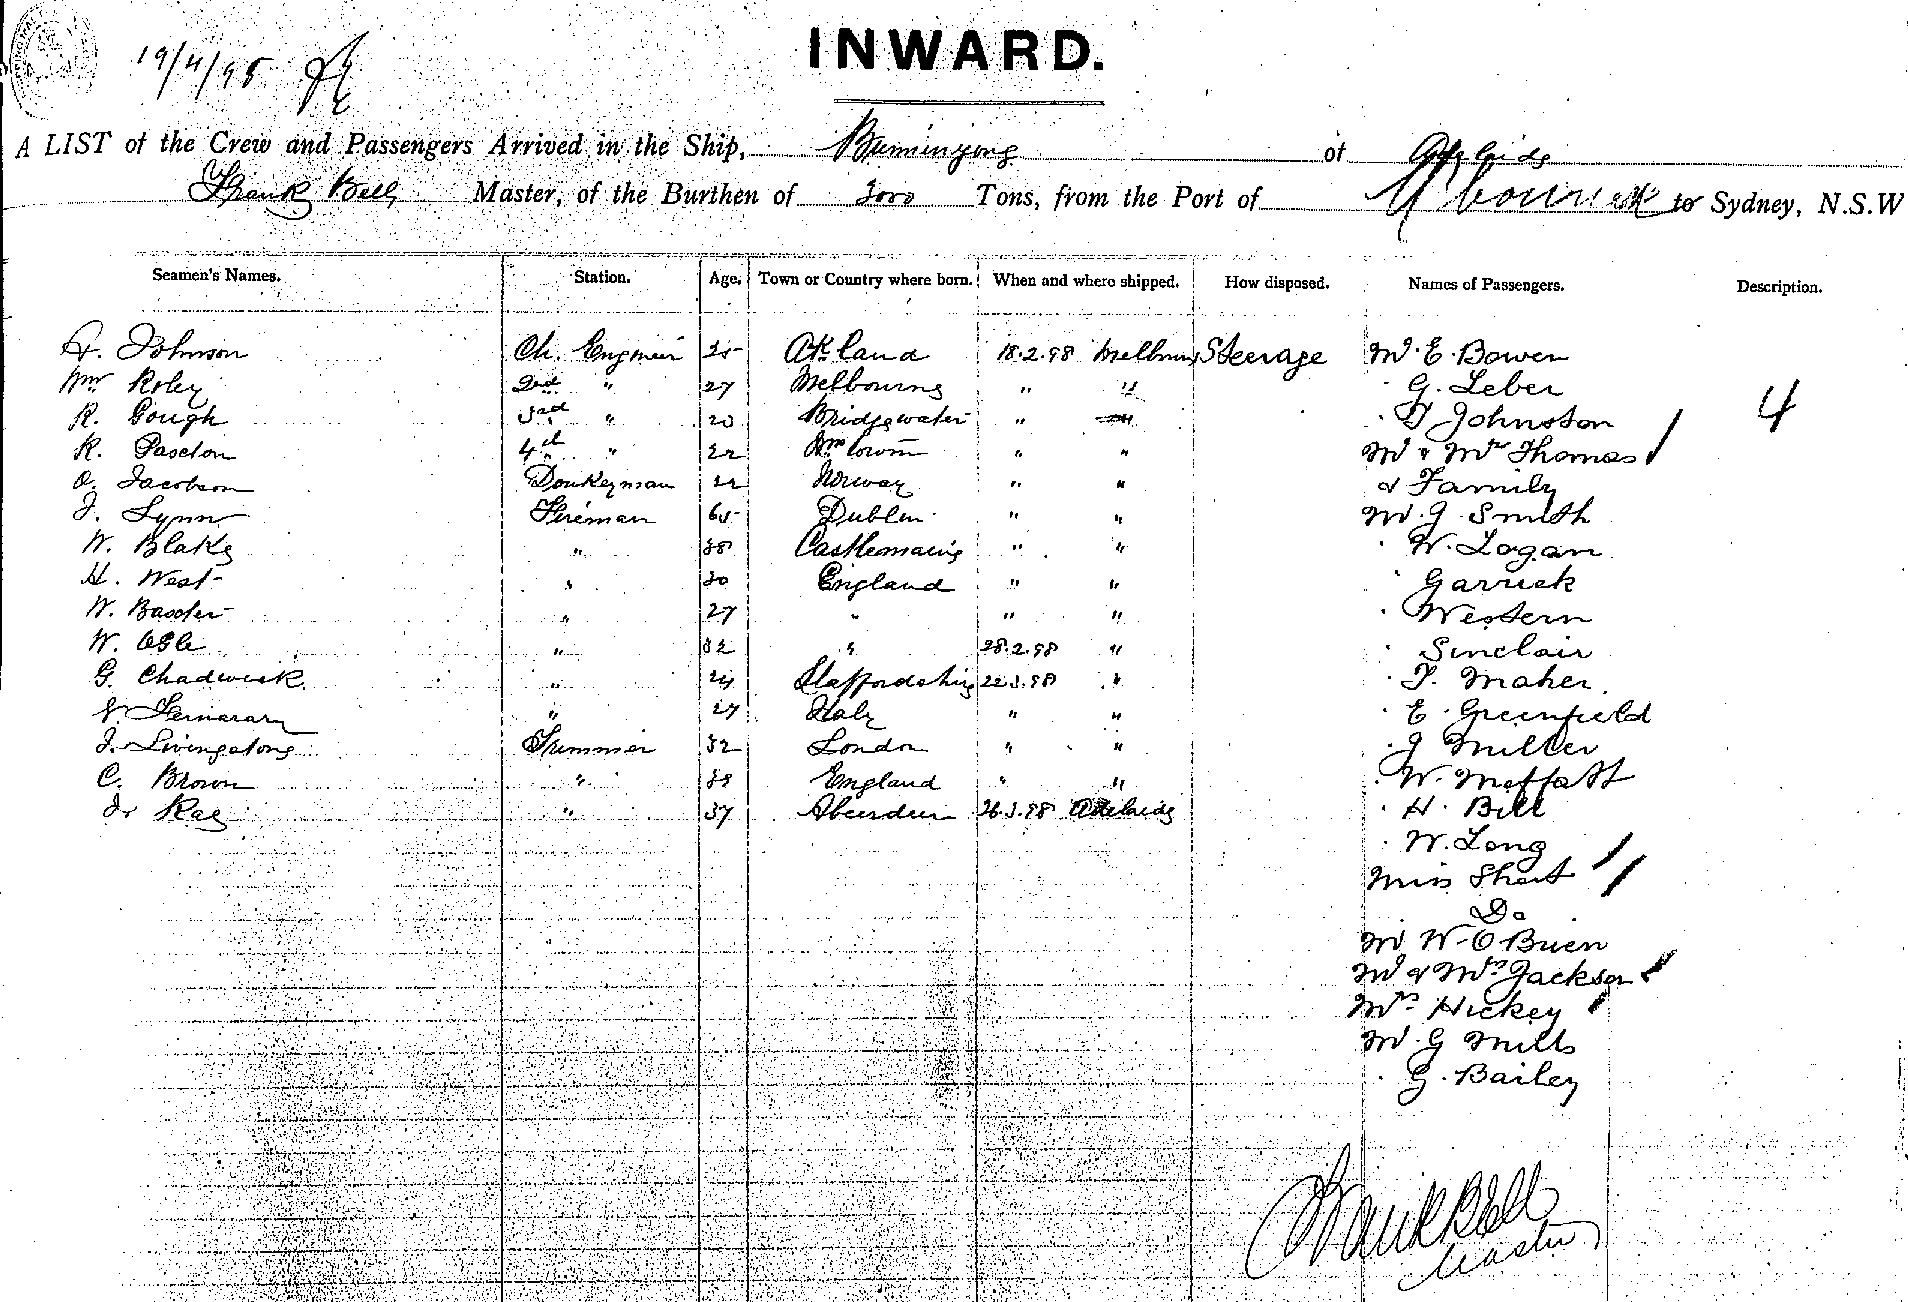 19/4/98
INWARD.
A LIST of the Crew and Passengers Arrived in the Ship, Buninyong of
Frank Bell Master, of the Burthen of 2000 Tons, from the Port of Melbourne to Sydney, N.S.W
Seamen's Names. Station. Age. Town or Country where born. When and where shipped. How disposed. Names of Passengers. Description.
Johnson Ch. Engineer 18.2.98 Melbourne Steerage Mr. E. Bowen
Wm Roley 2nd " 27 Melbourne " " " G. Leber 4
R. Gough 3rd " Bridgewater " " Johnston
R. Pascton 4th " 22 " " Mr & Mrs Thomas
O. Jacobson Donkeyman 22 Norway " " & Family
J. Lynn Fireman 65 Dublin " " Mr J Smith
W. Blake " 38 Castlemaine " " " W. Logan
H. West " 30 England " " " Garrick
W. Baxter " 27 " " " " Western
W. " 32 " 28.2.98 " " Sinclair
G. Chadwick " 24 Staffordshire 22.3.98 " " T. Maher
" 27 Italy " " " E. Greenfield
J. Livingstone Trimmer 32 London " " " J Miller
C. Brown " 38 England " " " W. Moffatt
Rae " 37 Aberdeen 26.3.98 Adelaide " H. Bell
" W. Long
Miss Short
Do
Mr W. O'Brien
Mr & Mrs Jackson
Mrs Hickey
Mr G Mills
" G. Bailey
Frank Bell
Master